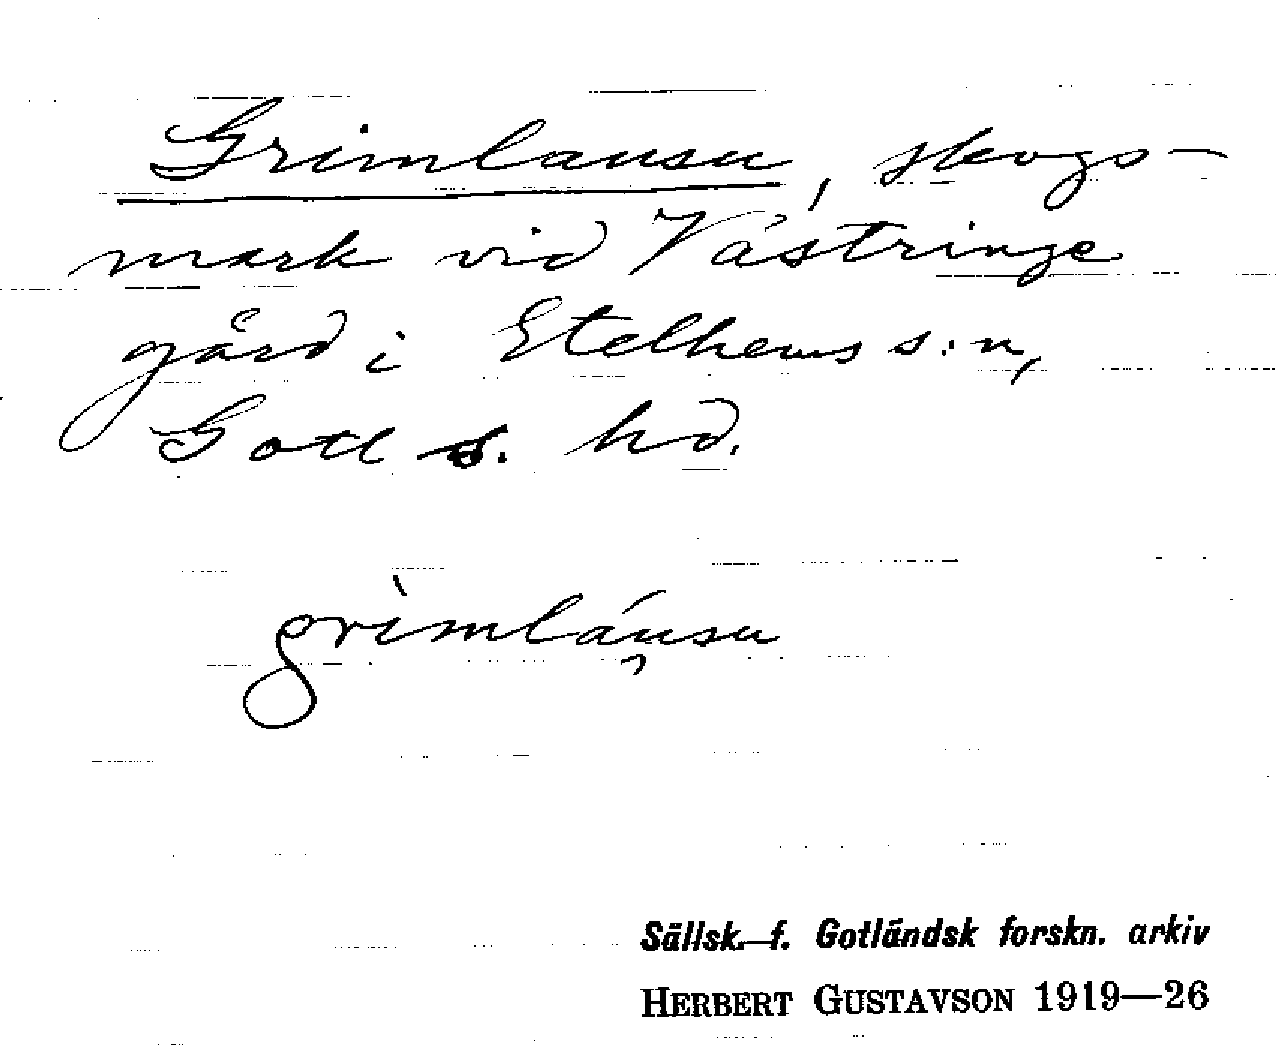 Grimlausu, skogs-
mark vid Västringe
gård i Etelhems s:n,
Gotl s. hd.
grìmláusu
Sällsk. f. Gotländsk forskn. arkiv
HERBERT GUSTAVSON 1919—26